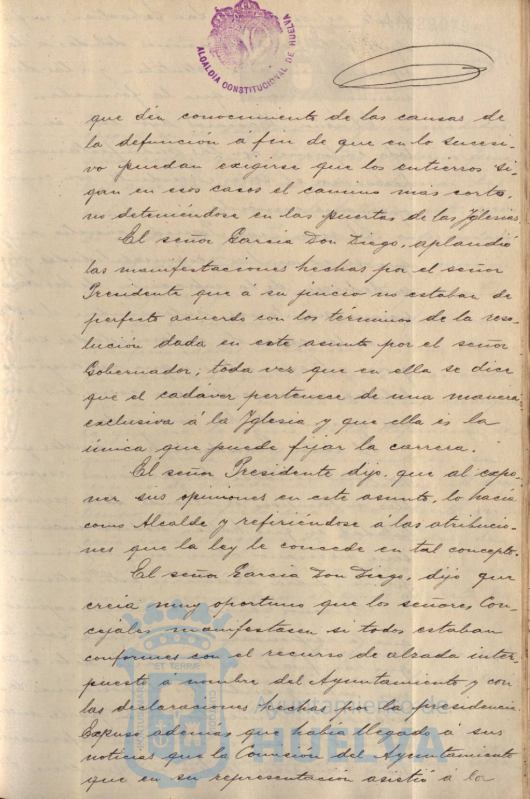 ALCALDIA CONSTITUCIONAL DE HUELVA
que dén conocimiento de las causas de
la defunción á fin de que en lo sucesi-
vo puedan exigirse que los entierros si-
gan en esos casos el camino más corto,
no deteniéndose en las puertas de las Yglesias.
El señor Garcia Don Diego, aplaudió
las manifestaciones hechas por el señor
Presidente que á su juicio no estaban de
perfecto acuerdo con los terminos de la reso-
lución dada en este asunto por el señor
Gobernador, toda vez que en ella se dice
que el cadaver pertenece de una manera
exclusiva á la Yglesia y que ella es la
única que puede fijar la carrera.
El señor Presidente dijo, que al expo-
ner sus opiniones en este asunto, lo hacia
como Alcalde y refiriéndose á las atribucio-
nes que la ley le concede en tal concepto.
El señor Garcia Don Diego, dijo que
creia muy oportuno que los señores Con-
cejales manifestasen si todos estaban
conformes con el recurso de alzada inter-
puesto á nombre del Ayuntamiento y con
las declaraciones hechas por la presidencia.
Expuso ademas que habia llegado á sus
noticias que la Comision del Ayuntamiento
que en su representación asistió á la
ET TERRAE
Ayuntamiento de
HUELVA